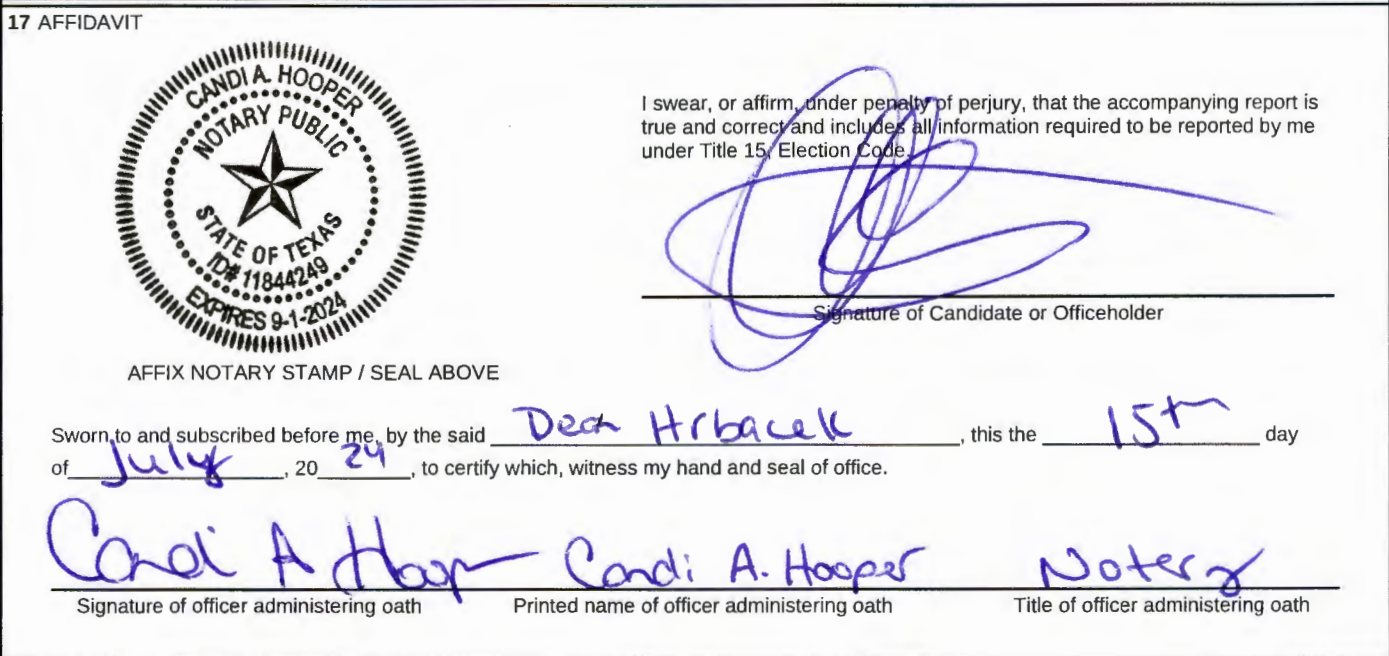 17 AFFIDAVIT
CANDI A. HOOPER
NOTARY PUBLIC
STATE OF TEXAS
ID# 11844249
EXPIRES 9-1-2024
AFFIX NOTARY STAMP / SEAL ABOVE
I swear, or affirm, under penalty of perjury, that the accompanying report is
true and correct and includes all information required to be reported by me
under Title 15, Election Code.
Signature of Candidate or Officeholder
Sworn to and subscribed before me, by the said Dean Hrbacek, this the 15th day
of July, 20 24, to certify which, witness my hand and seal of office.
Candi A Hooper Candi A. Hooper Notary
Signature of officer administering oath Printed name of officer administering oath Title of officer administering oath